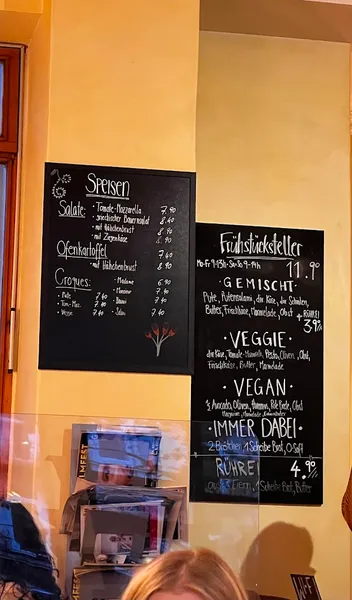 Speisen
Salate: · Tomate-Mozzarella 7.90
· griechischer Bauernsalat 8.40
· mit Hähnchenbrust 8.90
· mit Ziegenkäse 8.90
Ofenkartoffel 7.40
· mit Hähnchenbrust 8.90
Croques: · Madame 6.90
· Monsieur 7.40
· Pute 7.40
· Tom. 7.40
Frühstücksteller
Mo-Fr 9-13h Sa-So 9-14h 11.90
· GEMISCHT ·
Pute, Putensalami, div. Käse, ger. Schinken,
Butter, Frischkäse, Marmelade, Obst + RÜHREI
3.90
· VEGGIE ·
div. Käse, Tomate-Mozzarella, Pesto, Oliven, Obst,
Frischkäse, Butter, Marmelade
· VEGAN ·
½ Avocado, Oliven, Hummus, Rote Beete, Obst
Margarine, Marmelade
· IMMER DABEI ·
2 Brötchen, 1 Scheibe Brot, O-Saft
RÜHREI 4.90
aus 2 Eiern, 1 Scheibe Brot, Butter
LMFEST